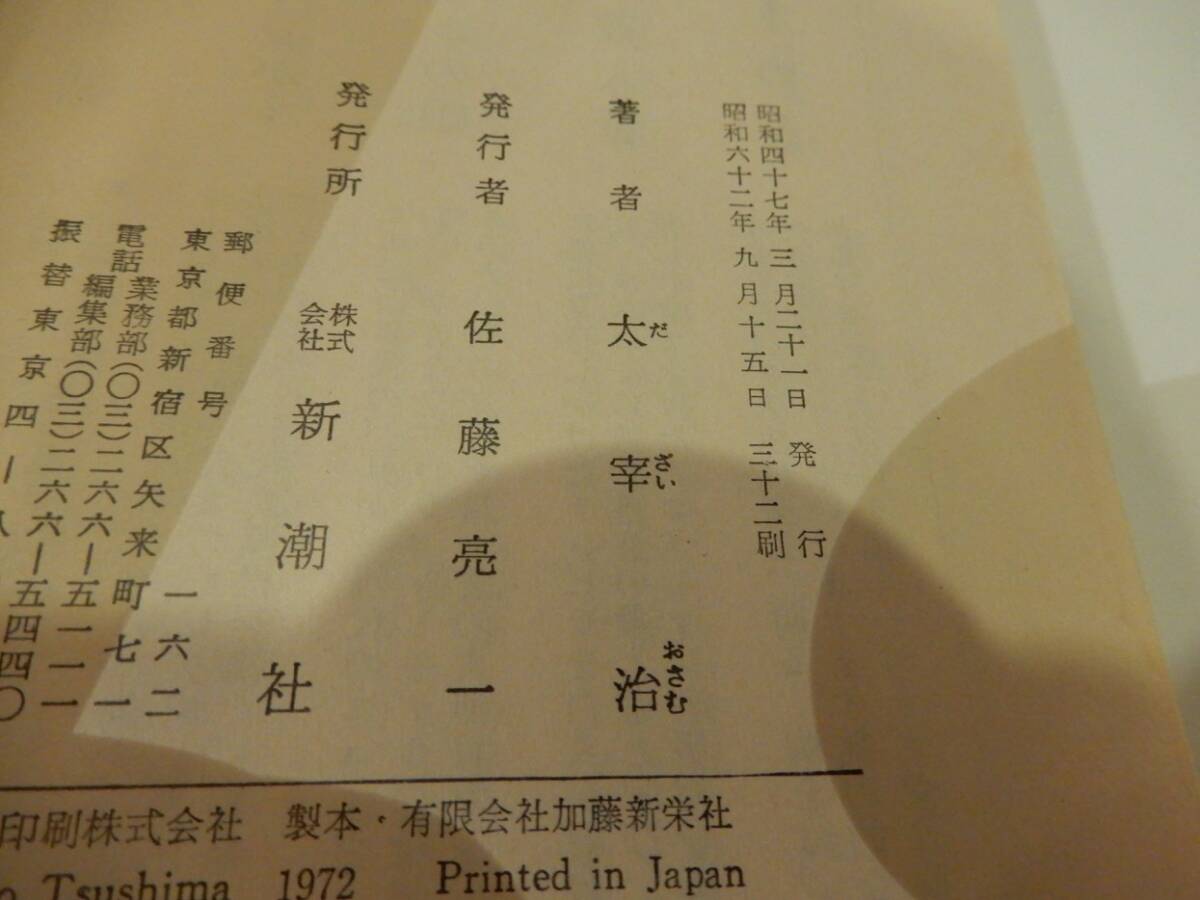 昭和四十七年 三月二十一日 発行
昭和六十二年 九月十五日 三十二刷
著者 太宰治
だざいおさむ
発行者 佐藤亮一
発行所 株式会社 新潮社
郵便番号 一六二
東京都新宿区矢来町七一
電話 業務部(〇三)二六六―五一一一
編集部(〇三)二六六―五四四〇
振替東京四―八
印刷株式会社 製本・有限会社加藤新栄社
Tsushima 1972 Printed in Japan